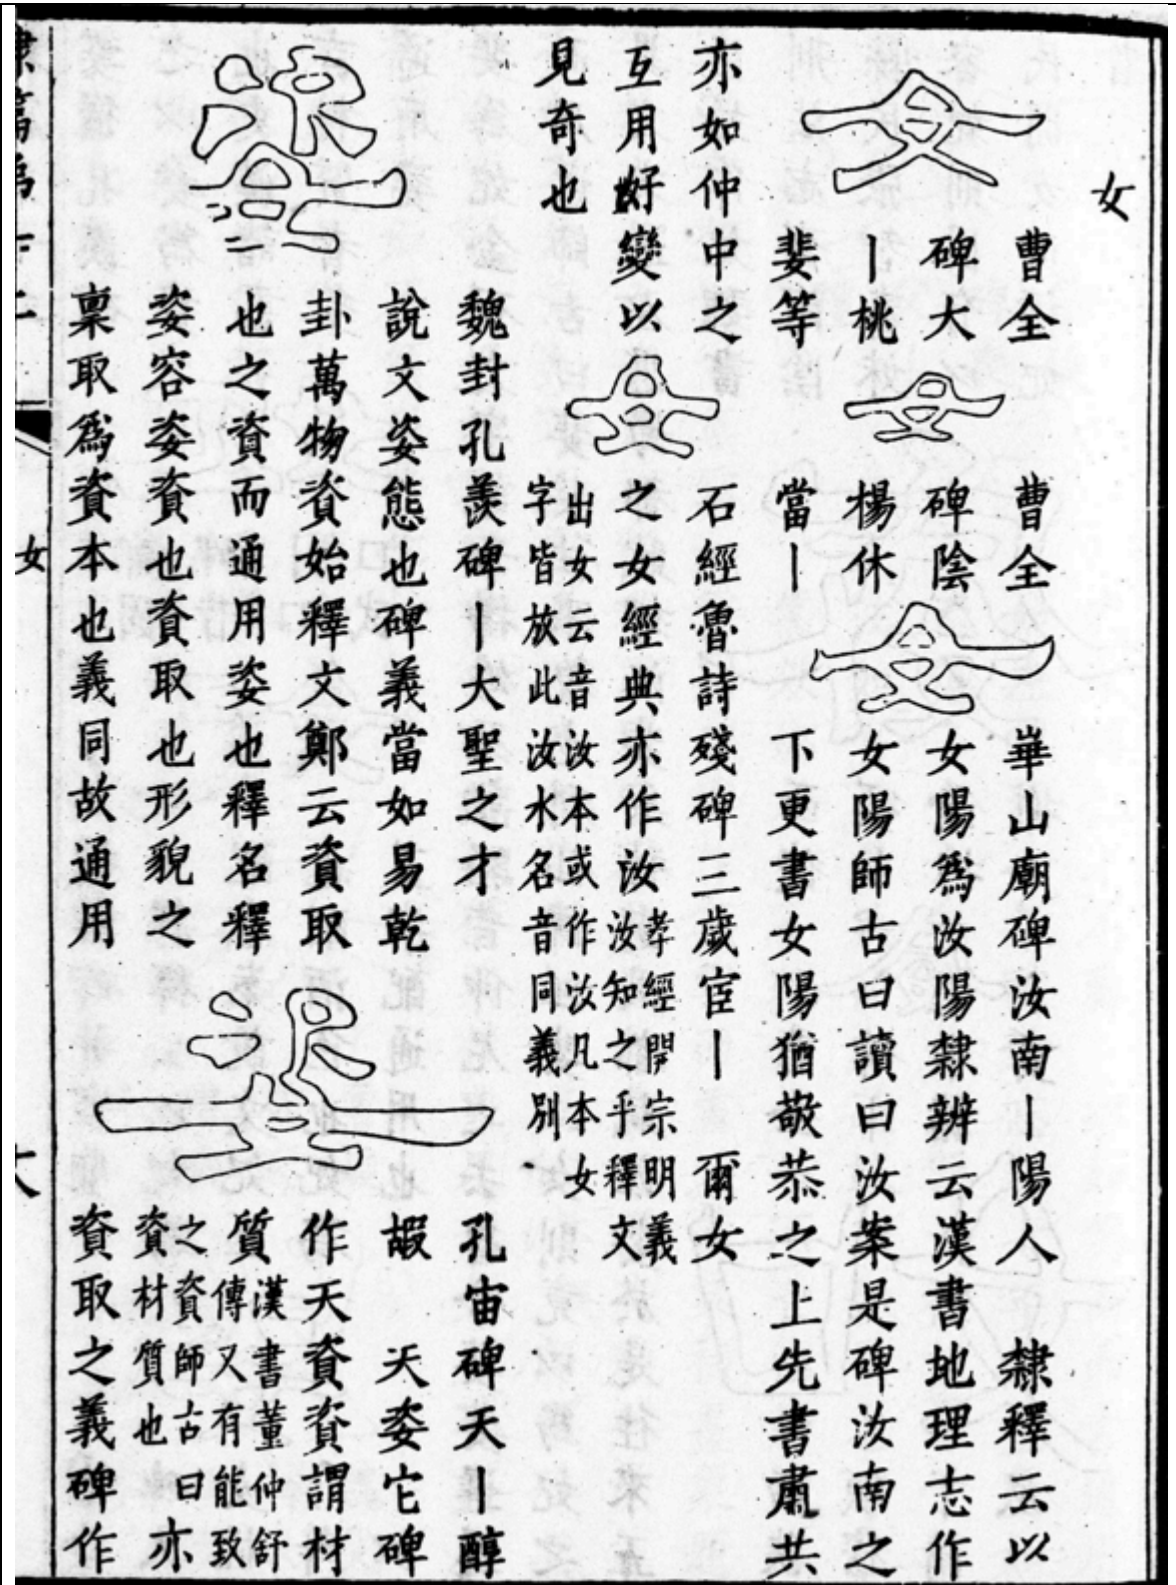 女
女
曹全
碑大
丨桃
婓等
女
曹全
碑陰
楊休
當丨
女
崋山廟碑汝南丨陽人 隸釋云以
女陽爲汝陽隸辨云漢書地理志作
女陽師古曰讀曰汝案是碑汝南之
下更書女陽猶敬恭之上先書肅共
亦如仲中之
互用好變以
見奇也
女
石經魯詩殘碑三歲宦丨 爾女
之女經典亦作汝
孝經開宗明義
汝知之乎釋文
出女云音汝本或作汝凡本女
字皆放此汝水名音同義別
姿
魏封孔羨碑丨大聖之才
說文姿態也碑義當如易乾
卦萬物資始釋文鄭云資取
也之資而通用姿也釋名釋
姿容姿資也資取也形貌之
稟取爲資本也義同故通用
姿
孔宙碑天丨醇
嘏 天姿它碑
作天資資謂材
質
漢書董仲舒
傳又有能致
之資師古曰
資材質也
亦
資取之義碑作
女